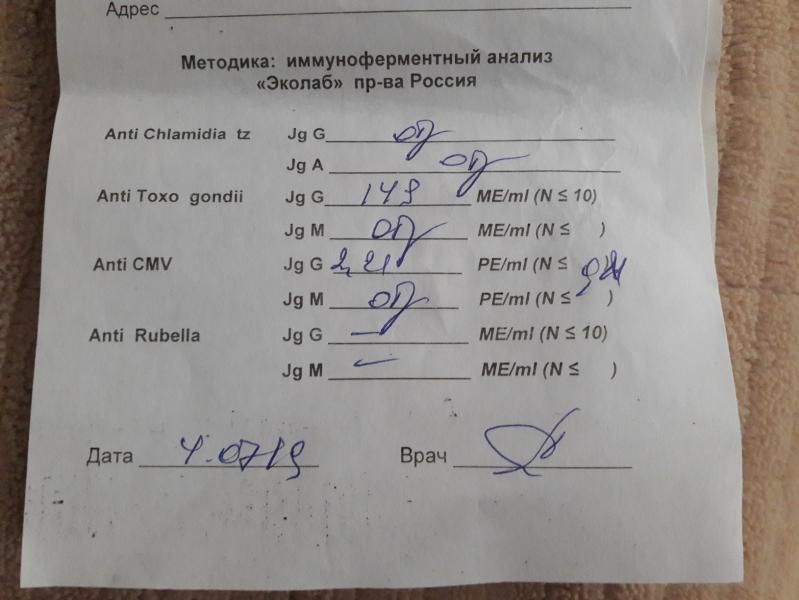 Адрес
Методика: иммуноферментный анализ
«Эколаб» пр-ва Россия
Anti Chlamidia tz Jg G отр
Jg A отр
Anti Toxo gondii Jg G 149 ME/ml (N ≤ 10)
Jg M отр ME/ml (N ≤ )
Anti CMV Jg G 2,21 PE/ml (N ≤
Jg M отр PE/ml (N ≤ )
Anti Rubella Jg G — ME/ml (N ≤ 10)
Jg M — ME/ml (N ≤ )
Дата 4.0719 Врач